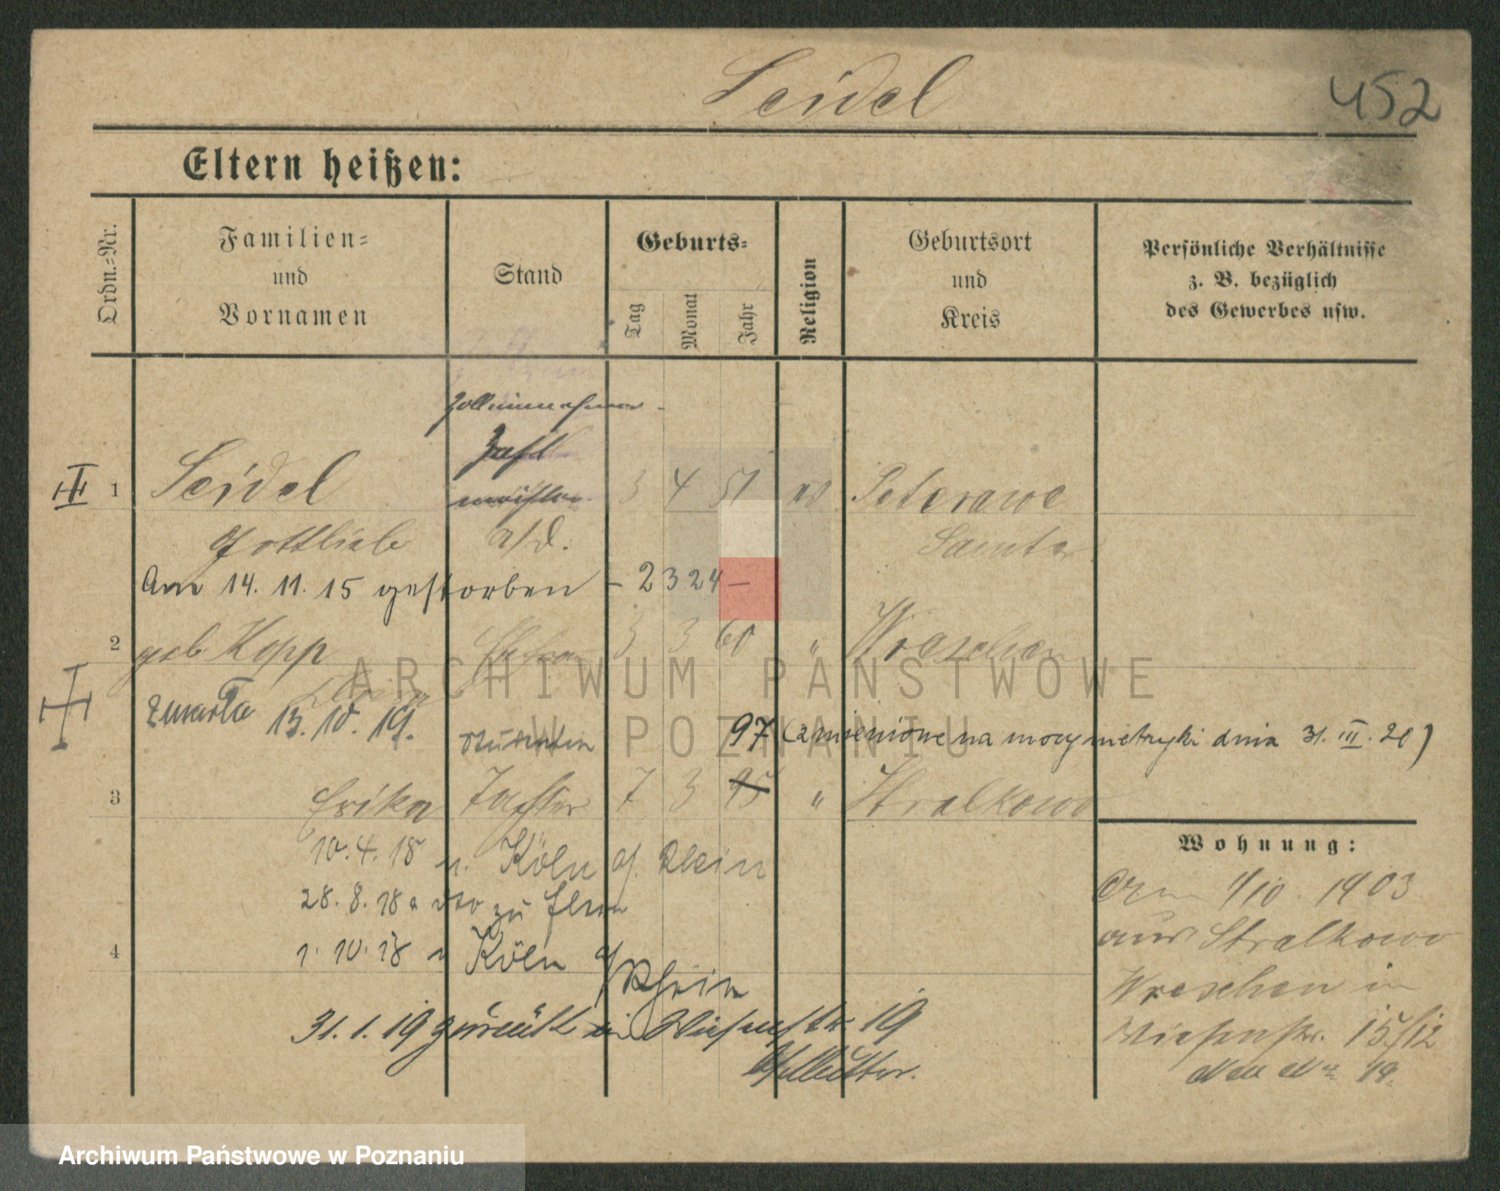 Seidel
452
Eltern heißen:
Ordn.-Nr.
Familien-
und
Vornamen
Stand
Geburts-
Tag
Monat
Jahr
Religion
Geburtsort
und
Kreis
Persönliche Verhältnisse
z. B. bezüglich
des Gewerbes usw.
Zolleinnehmer
1 Seidel 3 4 51 ev Peterawe
Gottlieb a/D. Samter
Am 14. 11. 15 gestorben – 2324 –
2 geb Kopp Ehefrau 3 3 60 " Wreschen
zmarła 13. 10. 19.
Studentin 97 (zmienione na mocy metryki dnia 31. III. 21)
3 Erika Tochter 7 3 95 " Stralkowo
10. 4. 18 n. Köln a/ Rhein
28. 8. 18 zu Eltern
4
1. 10. 18 n Köln a/Rhein
31. 1. 19 zurück in Wiesenstr 19
Wohnung:
Am 1/10. 1903
aus Stralkowo
Wreschen in
Wiesenstr. 15/12
neue No 19.
ARCHIWUM PAŃSTWOWE
W POZNANIU
Archiwum Państwowe w Poznaniu